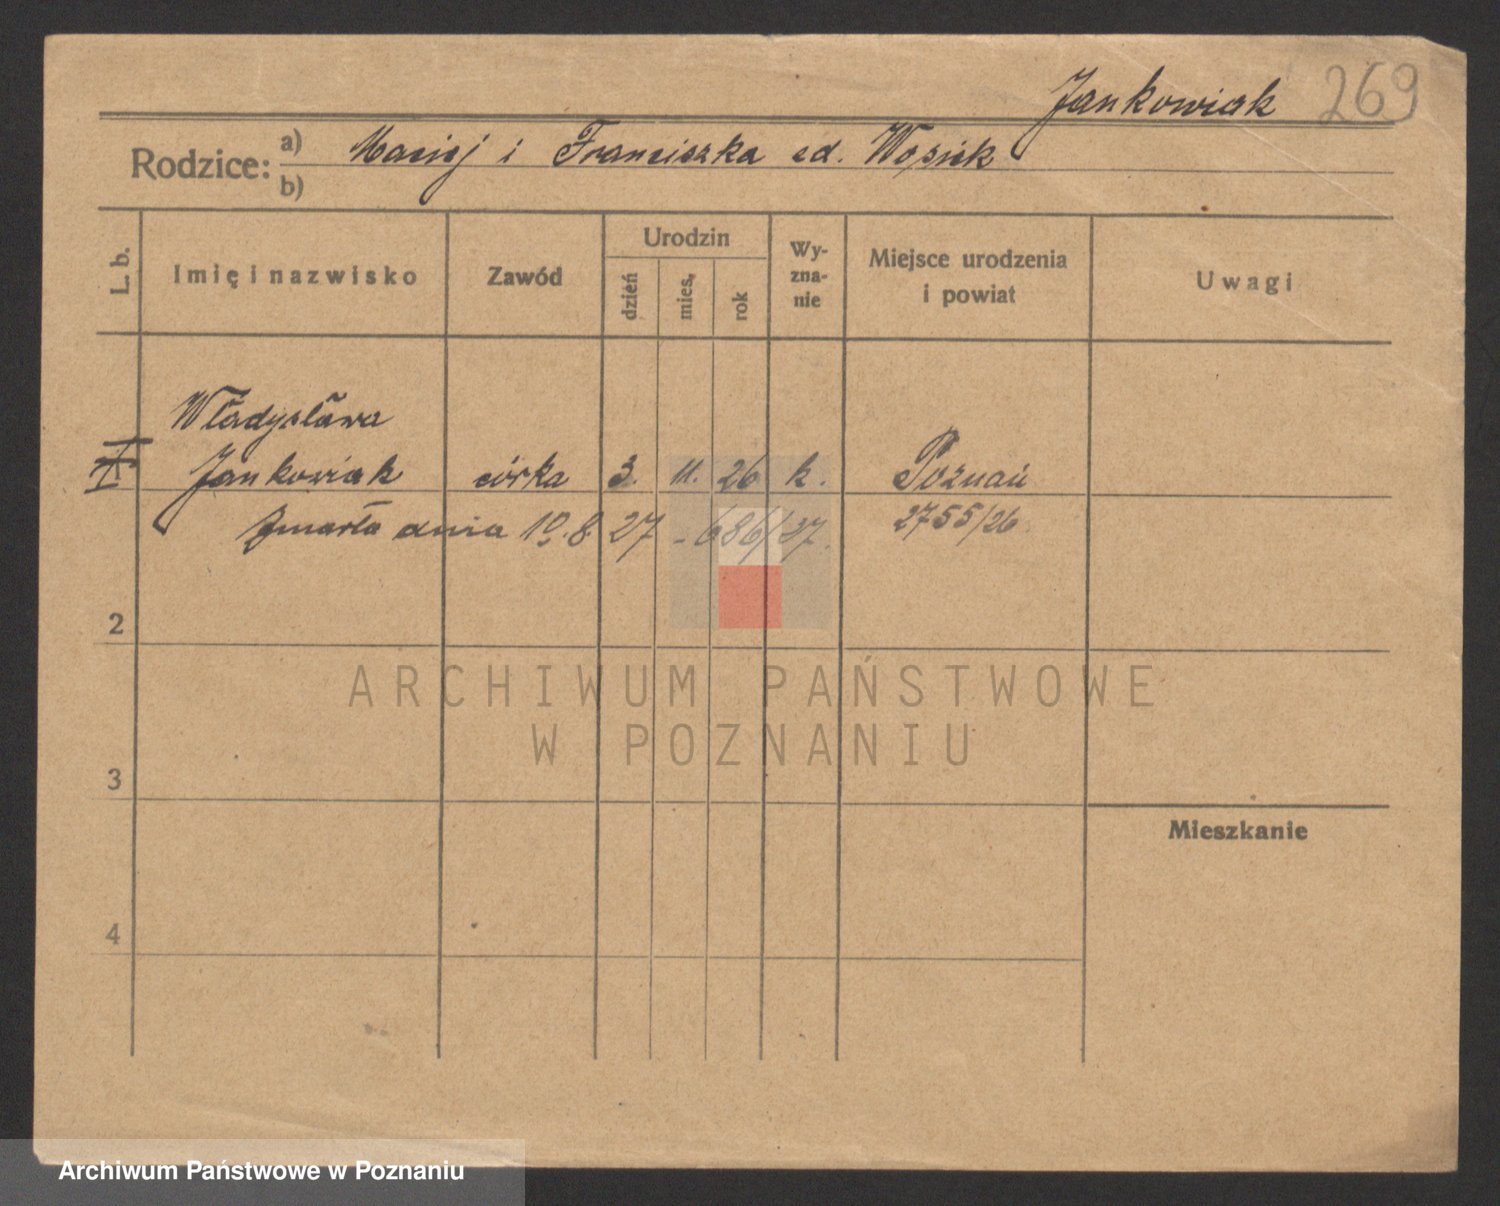 Jankowiak 269
Rodzice: a) Maciej i Franciszka cd. Wosiek
b)
L. b. Imię i nazwisko Zawód Urodzin dzień mies. rok Wy-zna-nie Miejsce urodzenia i powiat Uwagi
Władysława
1 Jankowiak córka 3. 11. 26 k. Poznań
Zmarła dnia 10.8.27 - 686/27. 2755/26.
2
ARCHIWUM PAŃSTWOWE
W POZNANIU
3
Mieszkanie
4
Archiwum Państwowe w Poznaniu